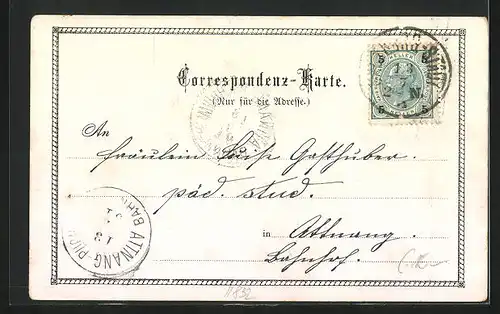 Correspondenz-Karte.
(Nur für die Adresse.)
5 5
5 5
An
Fräulein Luise Gasthuber
päd. stud.
in Attnang
Bahnhof.
ATTNANG-PUCH
BAH
13
11832